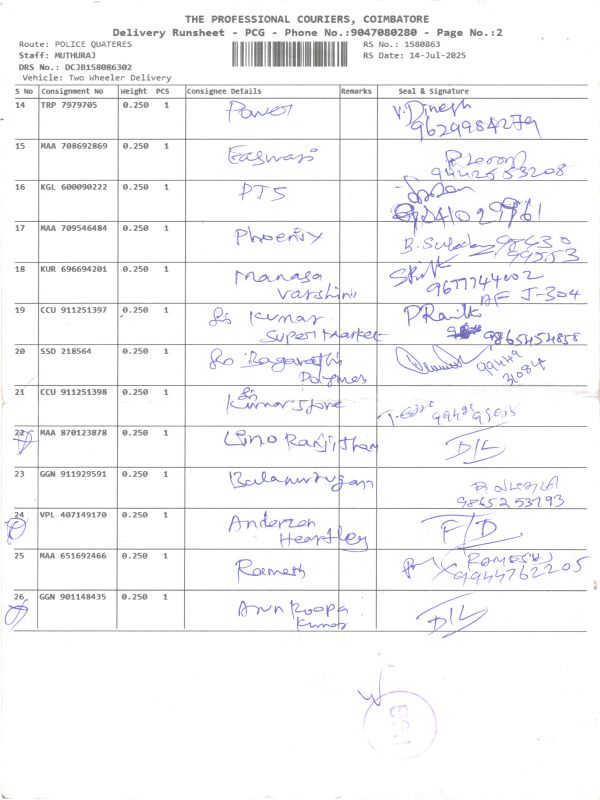 THE PROFESSIONAL COURIERS, COIMBATORE
Delivery Runsheet - PCG - Phone No.:9047080280 - Page No.:2
Route: POLICE QUATERES RS No.: 1580863
Staff: MUTHURAJ RS Date: 14-Jul-2025
DRS No.: DCJB158086302
Vehicle: Two Wheeler Delivery
S No Consignment No Weight PCS Consignee Details Remarks Seal & Signature
14 TRP 7979705 0.250 1 Power V. Dinesh
9629984279
15 MAA 708692869 0.250 1 Easwari
9442553208
16 KGL 600090222 0.250 1 PTS
17 MAA 709546484 0.250 1 Phoenix
18 KUR 696694201 0.250 1 Manasa
Varshini
9677744002
AF J-304
19 CCU 911251397 0.250 1 Sri Kumar
Super Market
9865454858
20 SSD 218564 0.250 1 Sri Bagavathi
Polymes
94449
31084
21 CCU 911251398 0.250 1 Sri
Kumar Store
22 MAA 870123878 0.250 1 Lino Ranjitham D/L
23 GGN 911929591 0.250 1 Balamurugan
98652 53793
24 VPL 407149170 0.250 1 Anderzen
Heartley F/D
25 MAA 651692466 0.250 1 Ramesh RAMESH
9944762205
26 GGN 901148435 0.250 1 Arun Roopa
Kumar D/L